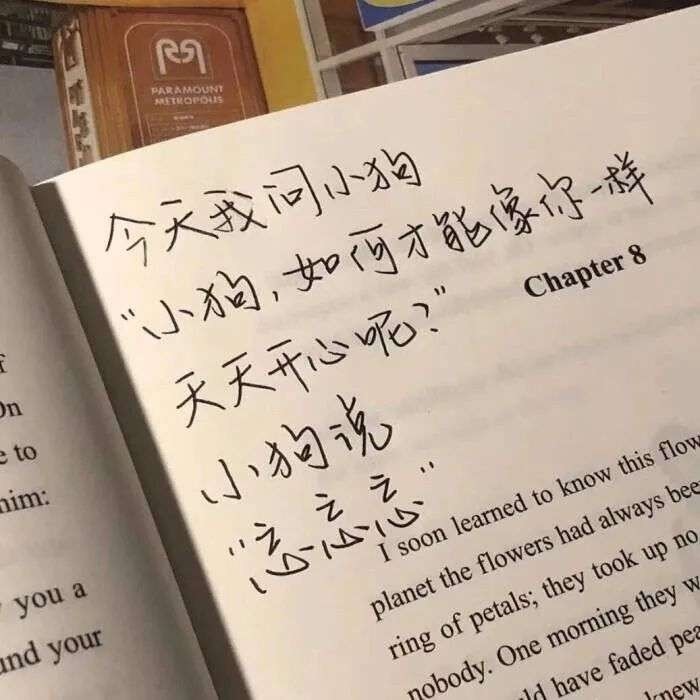 PARAMOUNT
METROPOLIS
今天我问小狗
“小狗,如何才能像你一样
天天开心呢?”
小狗说
“忘忘忘”
Chapter 8
On
e to
him:
you a
und your
I soon learned to know this flow
planet the flowers had always bee
ring of petals; they took up no
nobody. One morning they w
ld have faded pea
new